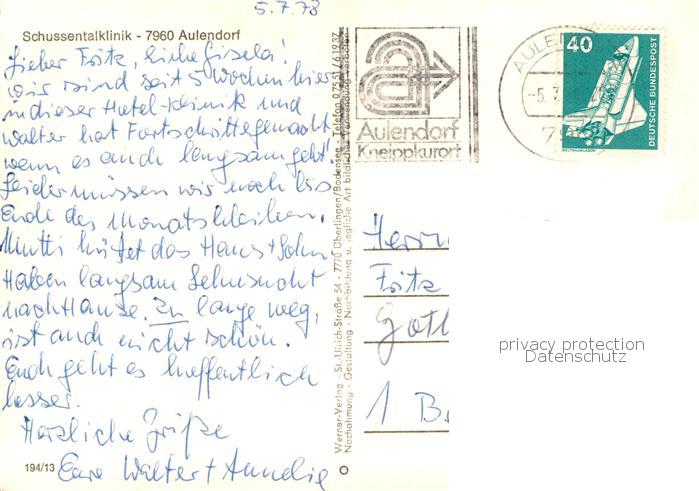 5.7.78
Schussentalklinik - 7960 Aulendorf
Lieber Fritz, liebe Gisela!
wir sind seit 5 Wochen hier
in dieser Hotel-Klinik und
Walter hat Fortschritte gemacht
wenn es auch langsam geht!
Leider müssen wir noch bis
Ende des Monats bleiben.
Mutti hütet das Haus + Sohn
Haben langsam Sehnsucht
nach Hause. Zu lange weg,
ist auch nicht schön.
Euch geht es hoffentlich
besser.
Herzliche Grüße
Eure Walter + Annelie
194/13
Werner-Verlag - St.-Ulrich-Straße 54 - 7770 Überlingen/Bodensee - Telefon 0 75 51 / 6 19 37
Nachahmung - Gestaltung - Nachbildung u. jegliche Art bildlicher Verwendung verboten
Aulendorf
Kneippkurort
AULEN
-5.7.
40
DEUTSCHE BUNDESPOST
WELTRAUMLABOR
Herrn
Fritz
Gott
1 B
privacy protection
Datenschutz